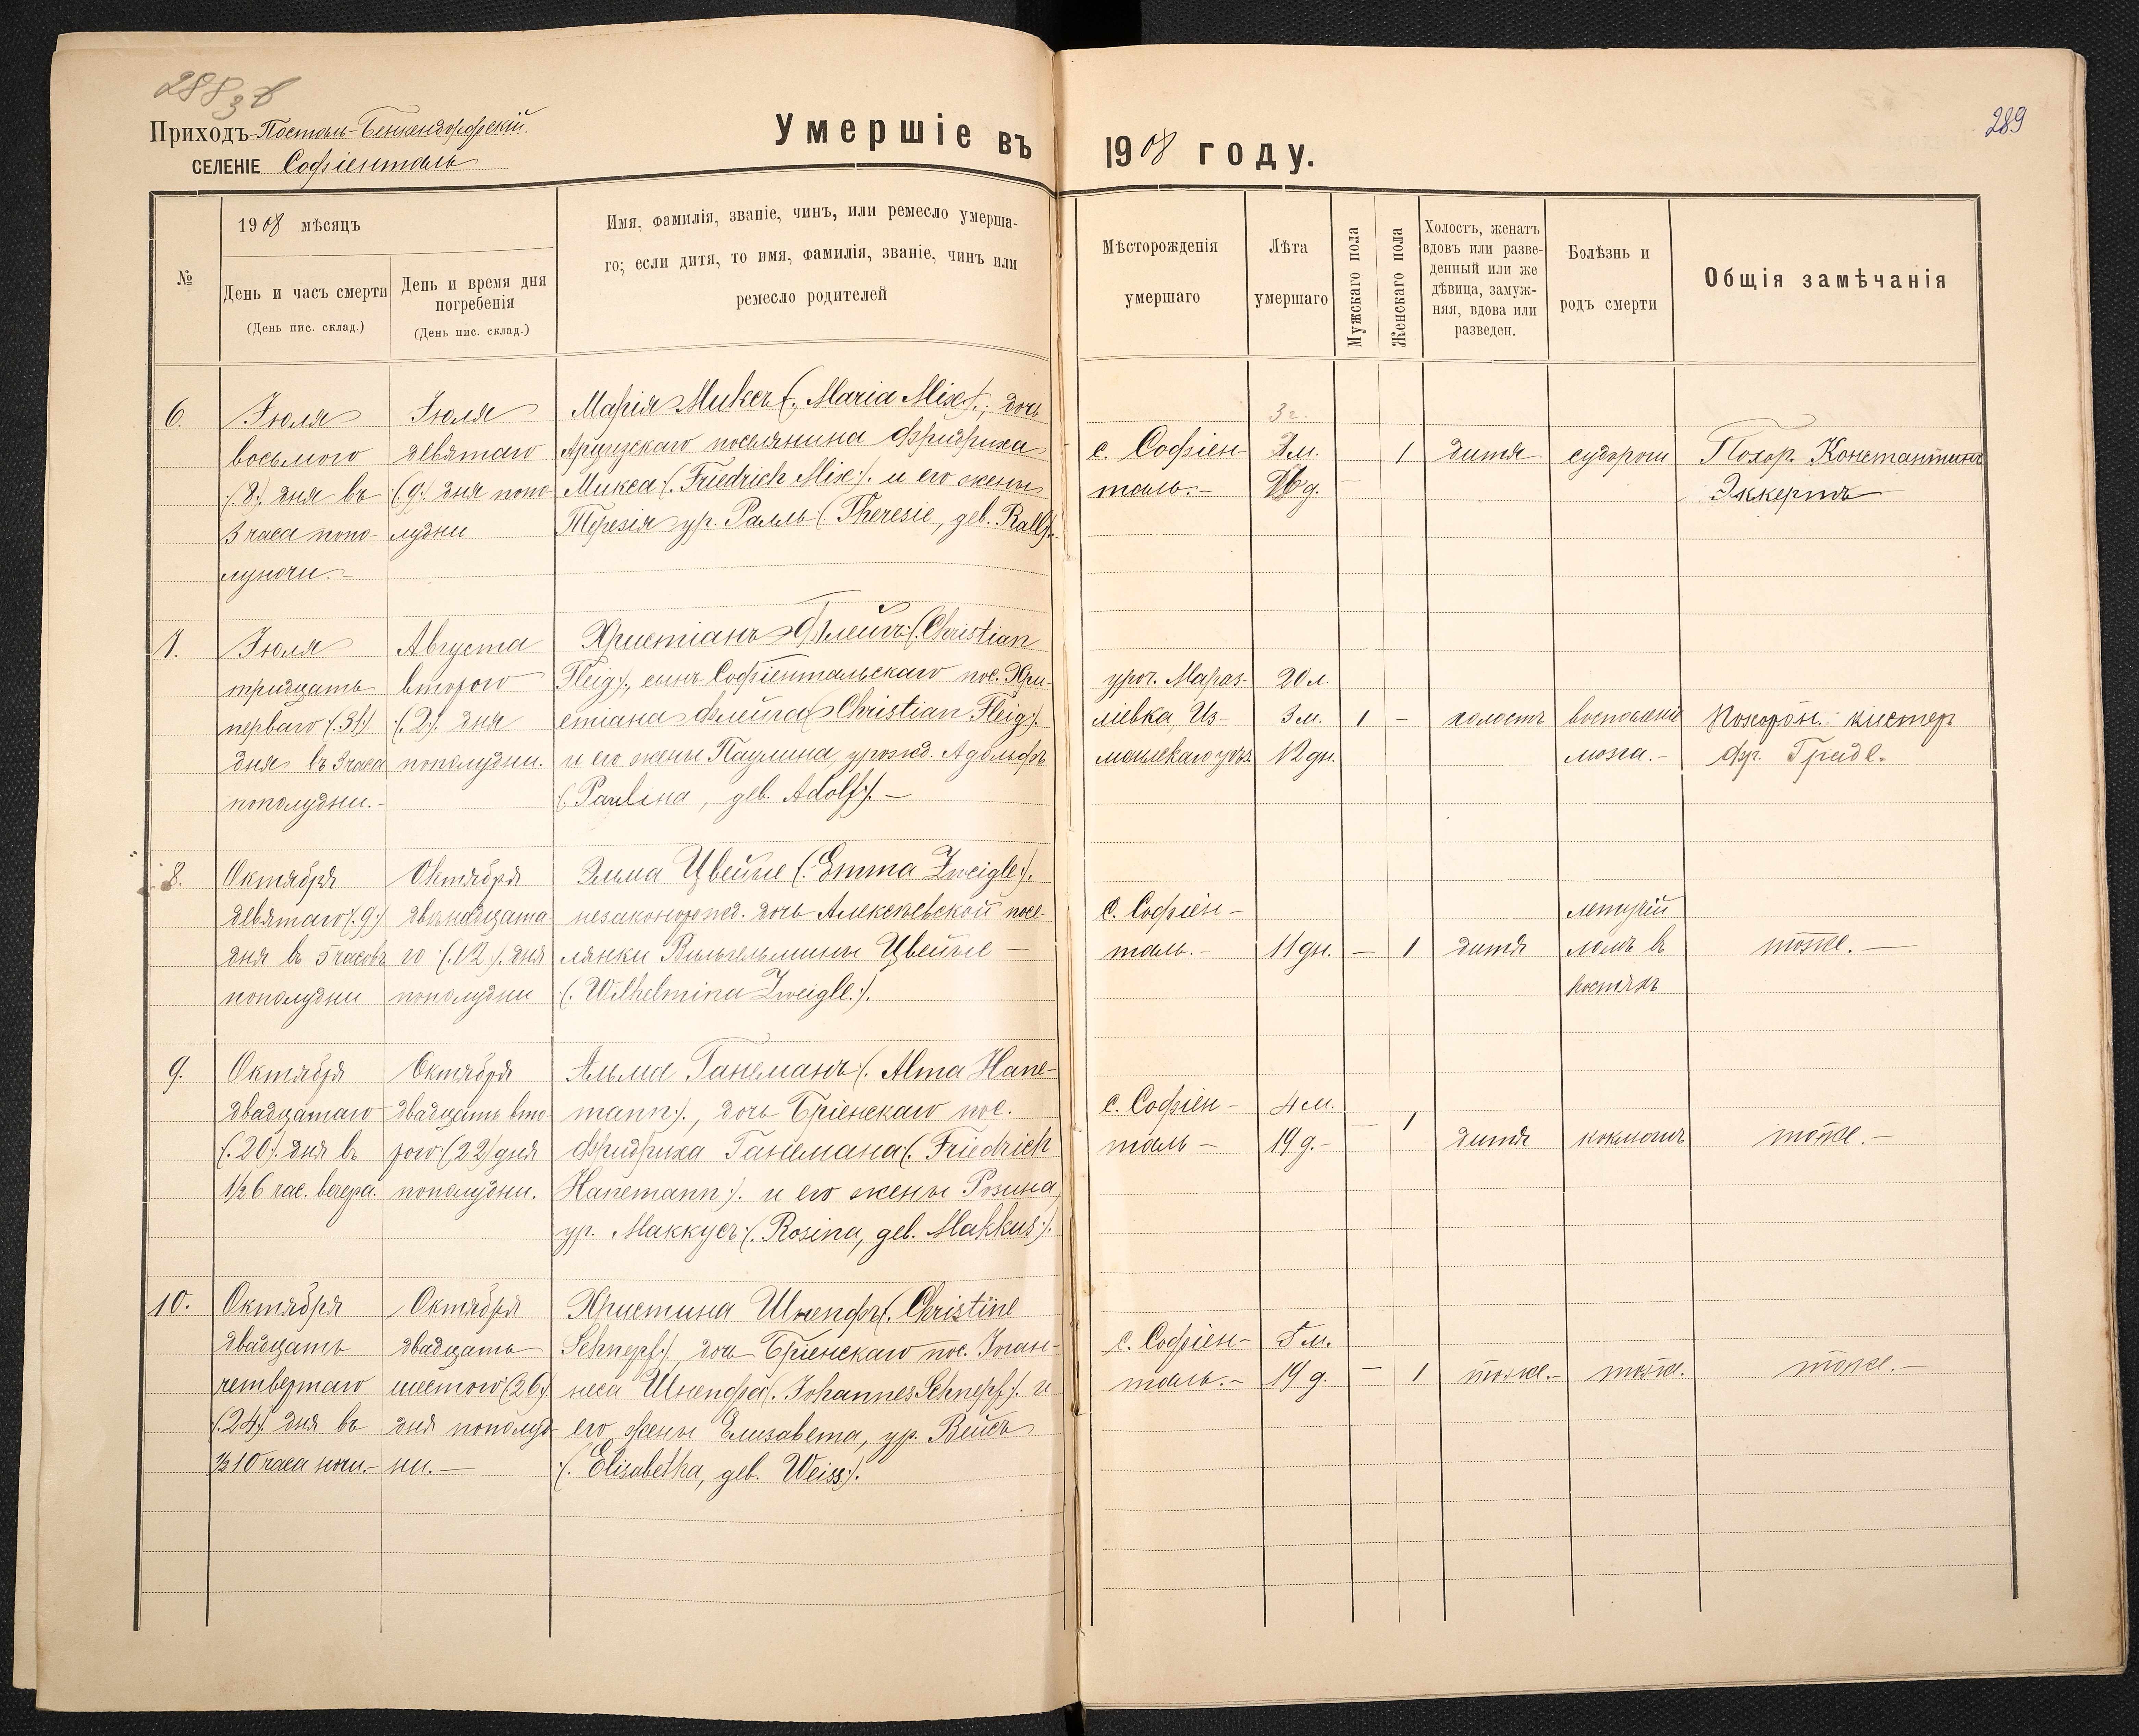 288 з в
289
Приходъ Постоль-Бенкендорфскій.
СЕЛЕНІЕ Софіенталь
Умершіе въ 1908 году.
№
1908 мѣсяцъ
День и часъ смерти
(День пис. склад.)
День и время дня
погребенія
(День пис. склад.)
Имя, фамилія, званіе, чинъ, или ремесло умерша-
го; если дитя, то имя, фамилія, званіе, чинъ или
ремесло родителей
Мѣсторожденія
умершаго
Лѣта
умершаго
Мужскаго пола
Женскаго пола
Холостъ, женатъ
вдовъ или разве-
денный или же
дѣвица, замуж-
няя, вдова или
разведен.
Болѣзнь и
родъ смерти
Общія замѣчанія
6.
Іюля
восьмого
(:8:) дня въ
3 часа попо-
луночи.-
Іюля
девятаго
(:9:) дня попо-
лудни
Марія Миксъ (:Maria Mix:); дочь
Арцизскаго поселянина Фридриха
Микса (:Friedrich Mix:) и его жены
Терезія ур. Ралль (:Theresie, geb. Rall:).
с. Софіен
таль.-
3 г.
м.
д.
-
1
дитя
судороги
Похор. Константинъ
Эккертъ
7.
Іюля
тридцать
перваго (:31:)
дня въ 3 часа
пополудни.-
Августа
второго
(:2:) дня
пополудни.
Христіанъ Флейгъ (:Christian
Fleig:), сынъ Софіентальскаго пос. Хри-
стіана Флейга (:Christian Fleig:)
и его жены Паулина, урожд. Адольфъ
(:Paulina, geb. Adolf:).-
уроч. Мараз-
ліевка, Из-
маильскаго уѣз.
20 л.
3 м.
12 дн.
1
-
холостъ
воспаленіе
мозга.-
Похорон. кистеръ
Фр. Гриде.
8.
Октября
девятаго (:9:)
дня въ 5 часовъ
пополудни
Октября
двѣнадцата-
го (:12:) дня
пополудни
Эмма Цвейгле (:Emma Zweigle:),
незаконорожд. дочь Алексѣевской посе-
лянки Вильгельмины Цвейгле-
(:Wilhelmina Zweigle:).
С. Софіен-
таль.-
11 дн.
-
1
дитя
летучій
ломъ въ
костяхъ
тоже.-
9.
Октября
двадцатаго
(:20:) дня въ
1/2 6 час. вечера.
Октября
двадцать вто-
рого (:22:) дня
пополудни.
Альма Ганеманъ (:Alma Hane-
mann:), дочь Бріенскаго пос.
Фридриха Ганемана (:Friedrich
Hanemann:) и его жены Розина,
ур. Маккусъ (:Rosina, geb. Makkus:).
с. Софіен-
таль-
4 м.
19 д.-
-
1
дитя
коклюшъ
тоже.-
10.
Октября
двадцать
четвертаго
(:24:) дня въ
1/2 10 часа ночи.-
Октября
двадцать
шестого (:26:)
дня пополуд-
ни.-
Христина Шнепфъ (:Christine
Schnepf:), дочь Бріенскаго пос. Іоган-
неса Шнепфа (:Johannes Schnepf:) и
его жены Елисавета, ур. Вейсъ
(:Elisabetha, geb. Weiss:).
с. Софіен-
таль.-
5 м.
19 д.
-
1
тоже.-
тоже.
тоже.-